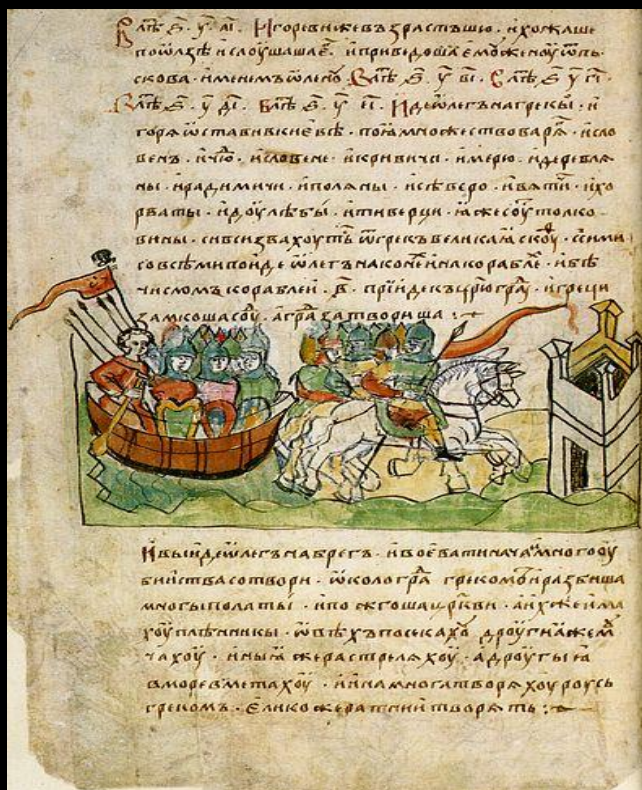 В лѣⷮ ҂ѕ҃. у҃. а҃і. Игореви же възрастъшю. и хожаше
по ѡлзѣ и слоушаша е҆г. и приведоша е҆моу женоу ѿ пь-
скова. именемъ ѡленоу. В лѣⷮ ҂ѕ҃. у҃ в҃і. В лѣⷮ ҂ѕ҃ у҃ г҃і.
В лѣⷮ ҂ѕ҃. у҃ д҃і. В лѣⷮ ҂ѕ҃. у҃ е҃і. Иде ѡлегъ на грекы. и
горѧ ѡстави в киевѣ. поꙗ множество варѧ. и сло
венъ. и чюⷣ. и словене. и кривичи. и мерю. и деревлѧ
ны. и радимичи. и полѧны. и сѣверо. и вѧтичи. и хо
рваты. и доулѣбы. и тиверци. ꙗже соуⷮ толко
вины. си вси звахоутьⷭ ѿ грекъ великаꙗ скоуⷴ. с сими
со всѣми поиде ѡлегъ на конеⷯ и на кораблѣⷯ. и бѣ
числомъ кораблеи. ҂в҃. прїиде къ цр҃югра. и греци
замкоша соуⷣ. а граⷣ затвориша :
И выиде ѡлегъ на брегъ. и воевати нача. и много оу
бииства сотвори. ѡколо граⷣ грекомъ. и разбиша
многы полаты. и пожгоша цр҃кви. а ихже има
хоу плѣнникы. ѡвѣхъ посекахоу дроугиꙗ же мⷱ
чахоу. иныꙗ же растрелѧхоу. а дроугыꙗ
в море вметахоу. и ина многа творѧхоу роусь
грекомъ. елико же ратнии творѧть :